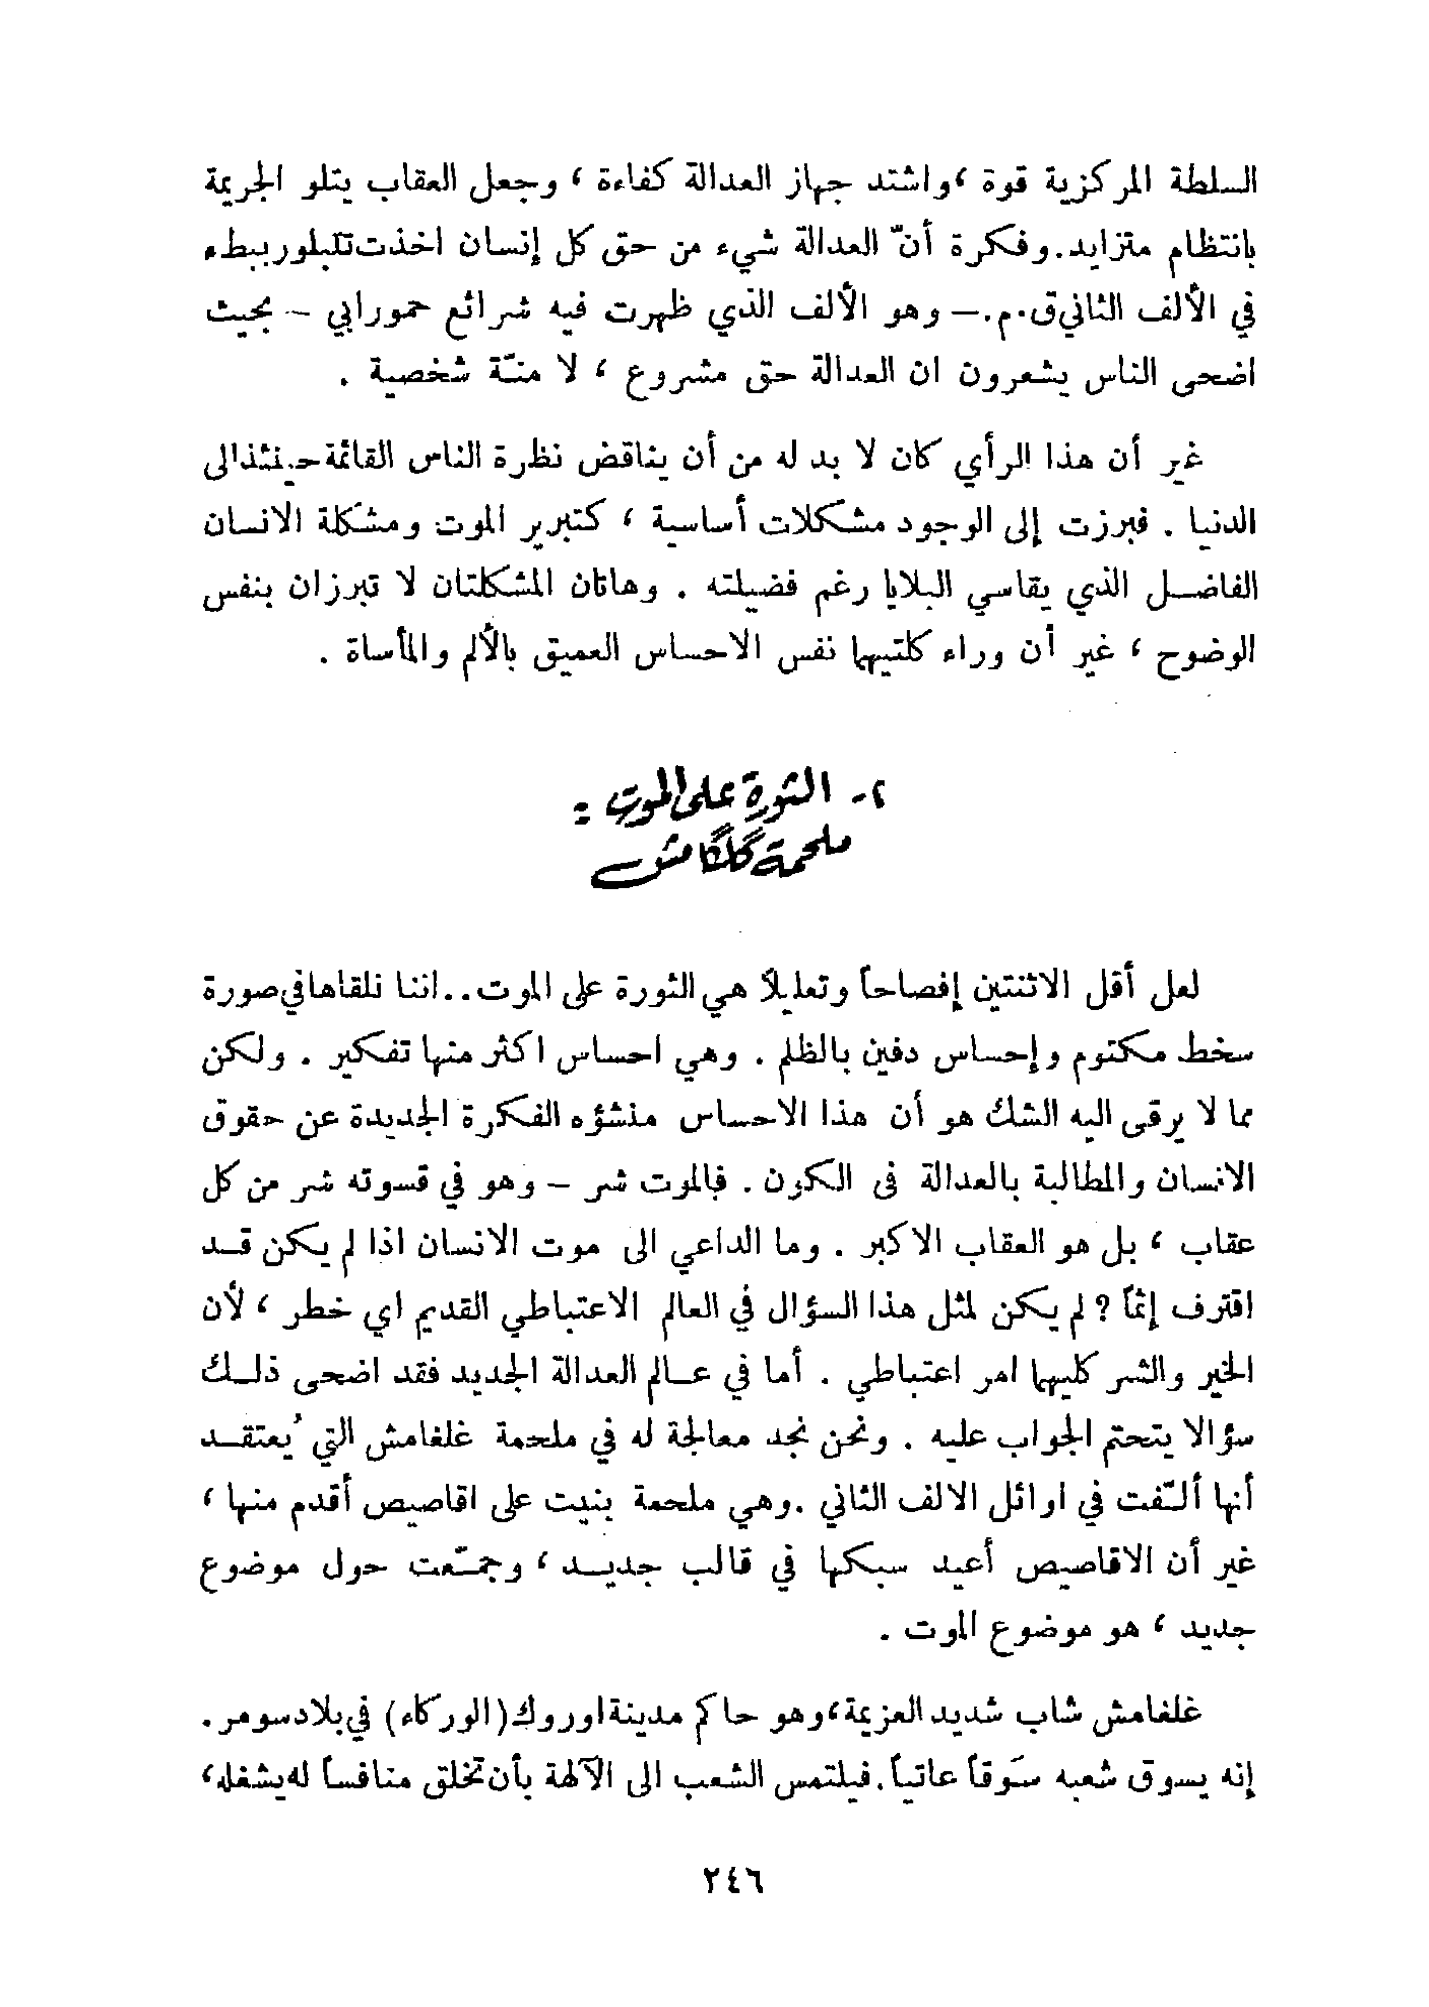 السلطة المركزية قوة ، واشتد جهاز العدالة كفاءة ، وجعل العقاب يتلو الجريمة
بانتظام متزايد . وفكرة أنّ العدالة شيء من حق كل إنسان اخذت تتبلور ببطء
في الألف الثاني ق.م. – وهو الألف الذي ظهرت فيه شرائع حمورابي – بحيث
اضحى الناس يشعرون ان العدالة حق مشروع ، لا منّة شخصية .
غير أن هذا الرأي كان لا بد له من أن يناقض نظرة الناس القائمة حينئذ الى
الدنيا . فبرزت إلى الوجود مشكلات أساسية ، كتبرير الموت ومشكلة الانسان
الفاضل الذي يقاسي البلايا رغم فضيلته . وهاتان المشكلتان لا تبرزان بنفس
الوضوح ، غير أن وراء كلتيهما نفس الاحساس العميق بالألم والمأساة .
٢- الثورة على الموت :
ملحمة گلگامش
لعل أقل الاثنتين إفصاحاً وتعليلاً هي الثورة على الموت .. اننا نلقاها في صورة
سخط مكتوم وإحساس دفين بالظلم . وهي احساس اكثر منها تفكير . ولكن
مما لا يرقى اليه الشك هو أن هذا الاحساس منشؤه الفكرة الجديدة عن حقوق
الانسان والمطالبة بالعدالة في الكون . فالموت شر – وهو في قسوته شر من كل
عقاب ، بل هو العقاب الاكبر . وما الداعي الى موت الانسان اذا لم يكن قد
اقترف إثماً ؟ لم يكن لمثل هذا السؤال في العالم الاعتباطي القديم اي خطر ، لأن
الخير والشر كليهما امر اعتباطي . أما في عالم العدالة الجديد فقد اضحى ذلك
سؤالا يتحتم الجواب عليه . ونحن نجد معالجة له في ملحمة غلغامش التي يُعتقد
أنها ألّفت في اوائل الالف الثاني . وهي ملحمة بنيت على اقاصيص أقدم منها ،
غير أن الاقاصيص أعيد سبكها في قالب جديد ، وجمّعت حول موضوع
جديد ، هو موضوع الموت .
غلغامش شاب شديد العزيمة ، وهو حاكم مدينة اوروك (الوركاء) في بلاد سومر .
إنه يسوق شعبه سَوقاً عاتياً . فيلتمس الشعب الى الآلهة بأن تخلق منافساً له يشغله ،
٢٤٦